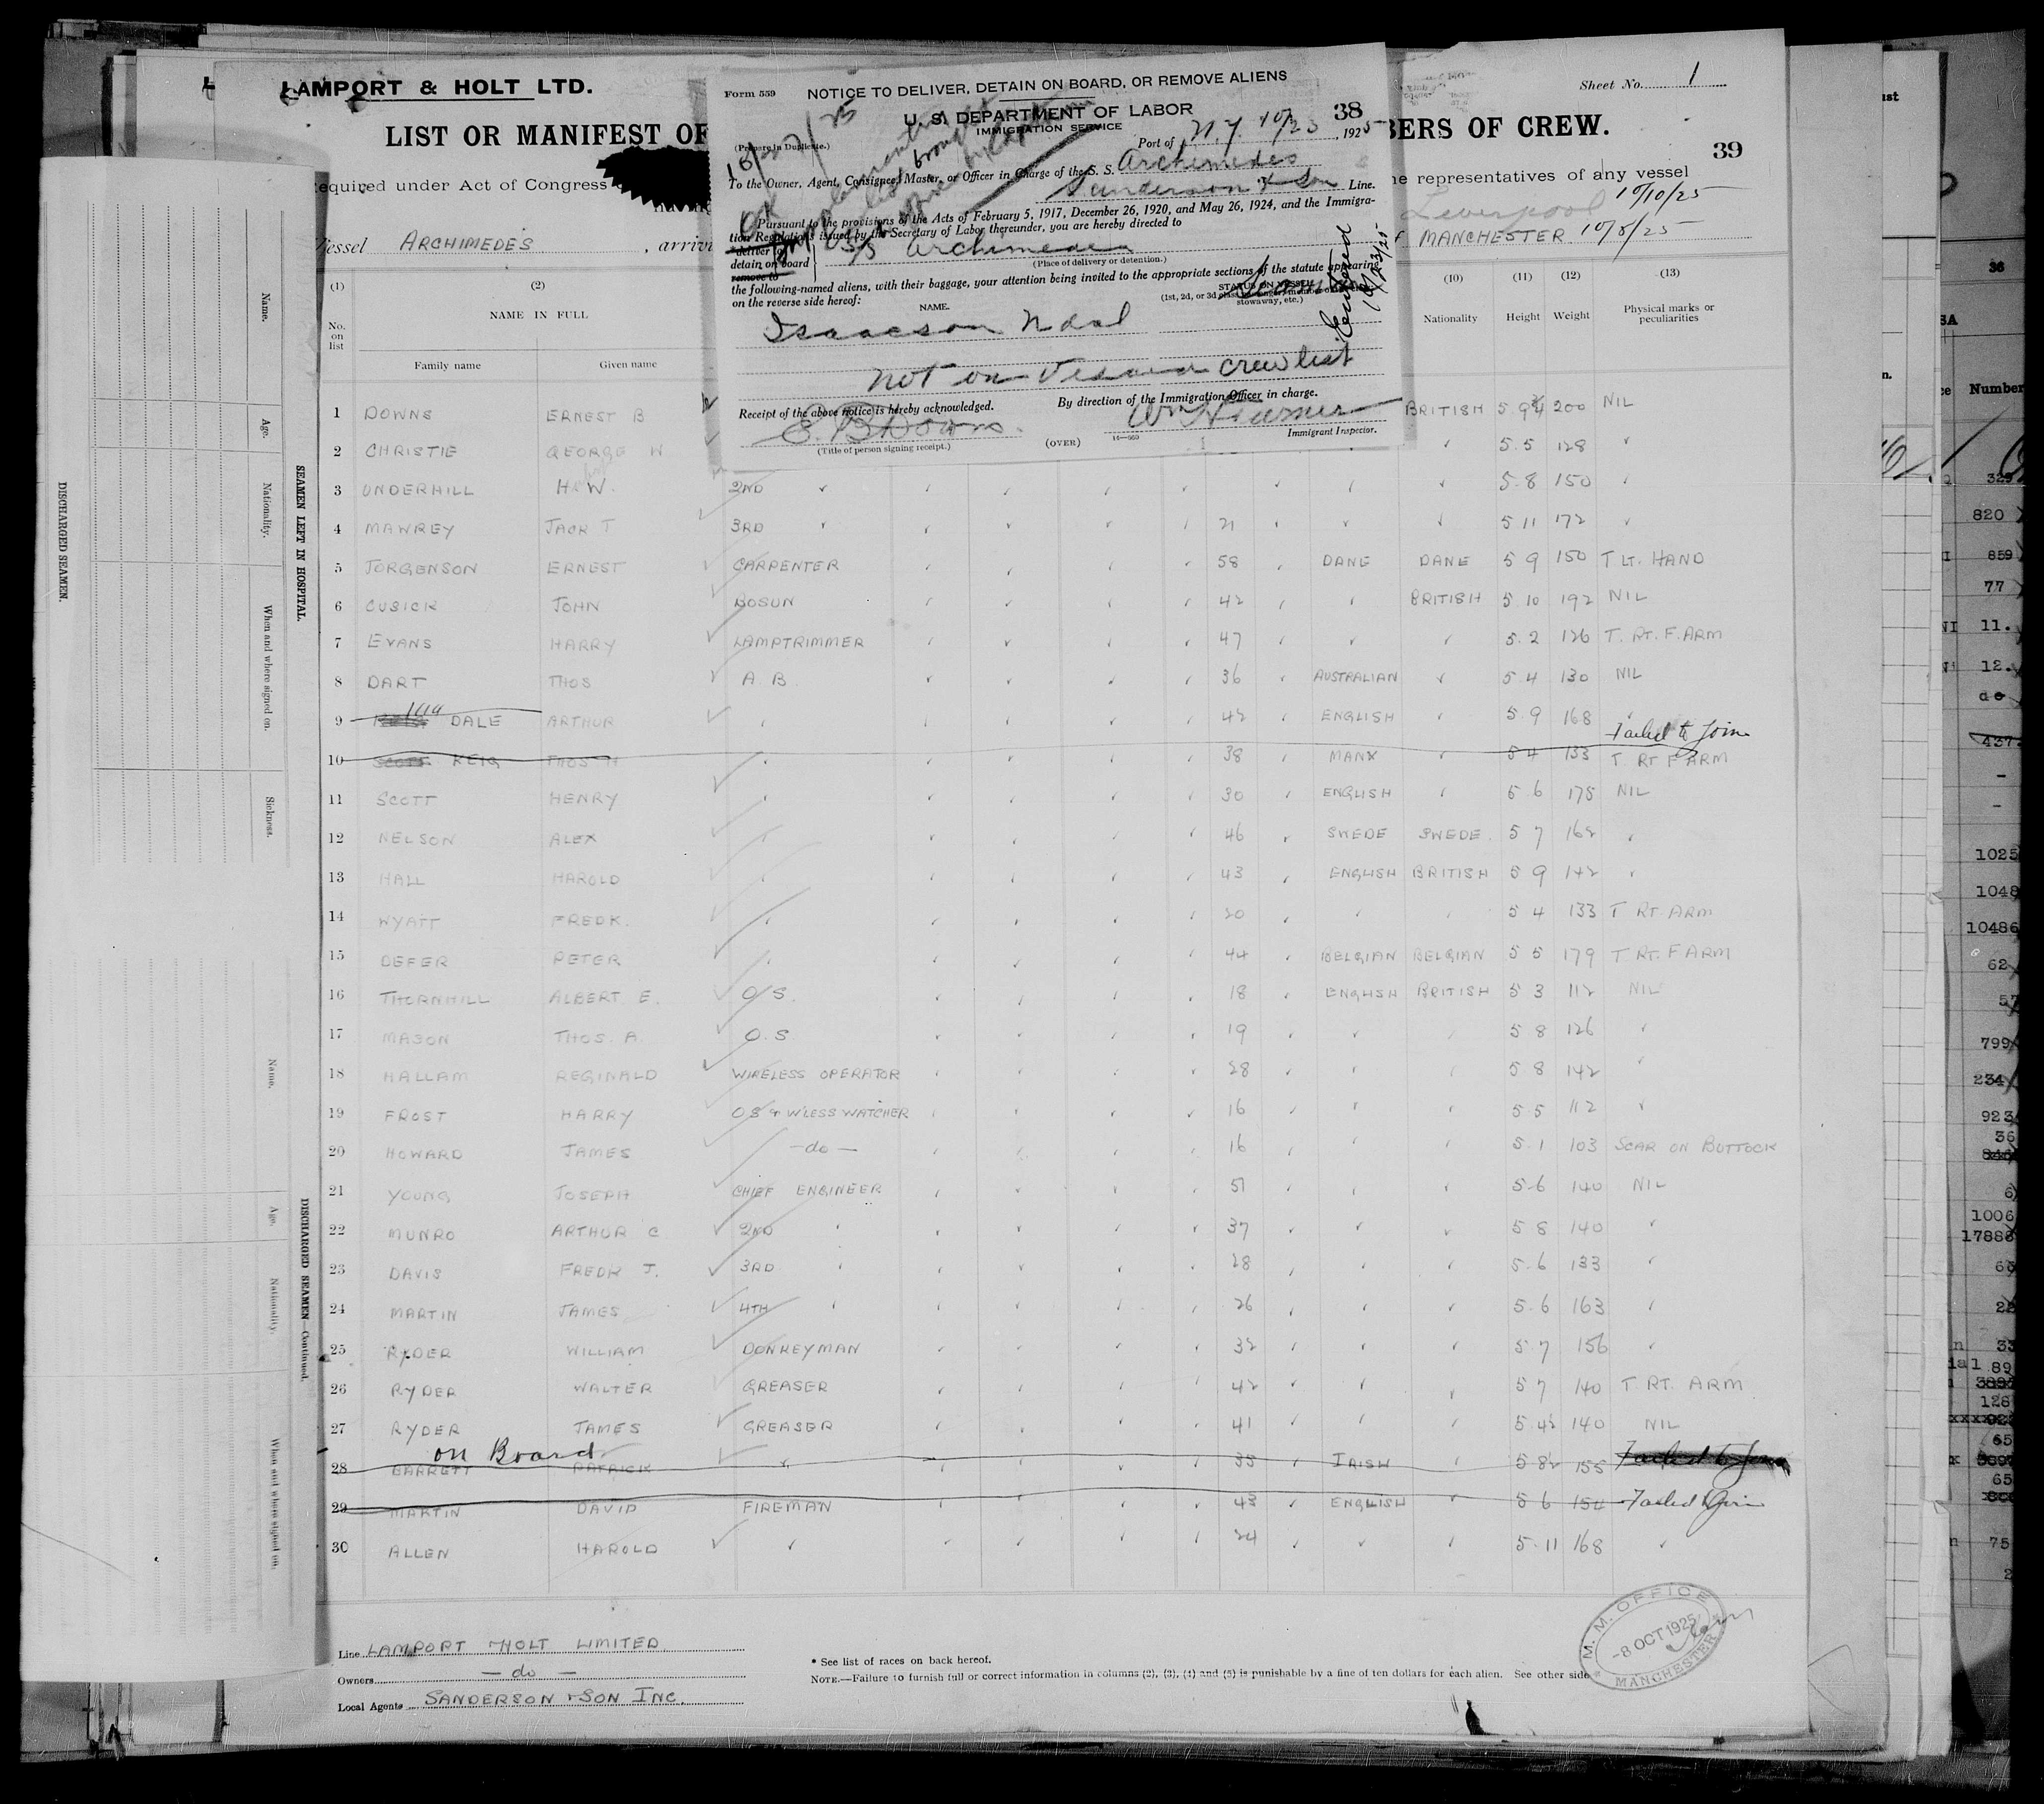 LAMPORT & HOLT LTD.
Sheet No. 1
LIST OR MANIFEST OF
BERS OF CREW.
39
equired under Act of Congress
he representatives of any vessel
Liverpool 10/10/25
Vessel ARCHIMEDES , arrivi
MANCHESTER 10/8/25
Form 559
NOTICE TO DELIVER, DETAIN ON BOARD, OR REMOVE ALIENS
U. S. DEPARTMENT OF LABOR
38
IMMIGRATION SERVICE
(Prepare in Duplicate.)
Port of N.Y. 10/23, 1925
To the Owner, Agent, Consignee, Master, or Officer in Charge of the S. S. Archimedes
Sanderson & Son Line.
Pursuant to the provisions of the Acts of February 5, 1917, December 26, 1920, and May 26, 1924, and the Immigra-
tion Regulations issued by the Secretary of Labor thereunder, you are hereby directed to
*deliver to
detain on board S/S Archimedes
remove to
(Place of delivery or detention.)
the following-named aliens, with their baggage, your attention being invited to the appropriate sections of the statute appearing
on the reverse side hereof:
NAME.
STATUS ON VESSEL
stowaway, etc.)
Isaacson
not on crew list
Receipt of the above notice is hereby acknowledged.
By direction of the Immigration Officer in charge.
E. B. Downs.
(Title of person signing receipt.)
(OVER)
Immigrant Inspector.
10/23/25
(1) (2) (10) (11) (12) (13)
No. on list
NAME IN FULL
Nationality Height Weight Physical marks or peculiarities
Family name Given name
1 DOWNS ERNEST B BRITISH 5 9¾ 200 NIL
2 CHRISTIE GEORGE W 5.5 128
3 UNDERHILL H W. 2ND 5.8 150
4 MAWREY JACK T 3RD 21 5 11 172
5 JORGENSON ERNEST CARPENTER 58 DANE DANE 5 9 150 T LT. HAND
6 CUSICK JOHN BOSUN 42 BRITISH 5 10 192 NIL
7 EVANS HARRY LAMPTRIMMER 47 5.2 126 T. RT. F. ARM
8 DART THOS A.B. 36 AUSTRALIAN 5 4 130 NIL
9 DALE ARTHUR 42 ENGLISH 5.9 168
Failed to Join
10 KEIG THOS H 38 MANX 5 4 133 T. RT F ARM
11 SCOTT HENRY 30 ENGLISH 5 6 175 NIL
12 NELSON ALEX 46 SWEDE SWEDE 5 7 162
13 HALL HAROLD 43 ENGLISH BRITISH 5 9 142
14 WYATT FREDK. 20 5 4 133 T RT. ARM
15 DEFER PETER 44 BELGIAN BELGIAN 5 5 179 T RT. F ARM
16 THORNHILL ALBERT E. O/S. 18 ENGLISH BRITISH 5 3 112 NIL
17 MASON THOS. A. O.S 19 5 8 126
18 HALLAM REGINALD WIRELESS OPERATOR 28 5 8 142
19 FROST HARRY OS & W'LESS WATCHER 16 5 5 112
20 HOWARD JAMES - do - 16 5.1 103 SCAR ON BUTTOCK
21 YOUNG JOSEPH CHIEF ENGINEER 51 5-6 140 NIL
22 MUNRO ARTHUR C 2ND 37 5 8 140
23 DAVIS FREDK J. 3RD 28 5-6 133
24 MARTIN JAMES 4TH 26 5.6 163
25 RYDER WILLIAM DONKEYMAN 32 5.7 156
26 RYDER WALTER GREASER 42 5 7 140 T RT. ARM
27 RYDER JAMES GREASER 41 5.4½ 140 NIL
on Board
28 BARRETT PATRICK 35 IRISH 5 8½ 155 Failed to Join
29 MARTIN DAVID FIREMAN 43 ENGLISH 5 6 154 Failed to Join
30 ALLEN HAROLD 24 5.11 168
Line LAMPORT & HOLT LIMITED
Owners - do -
Local Agents SANDERSON & SON INC.
* See list of races on back hereof.
NOTE.—Failure to furnish full or correct information in columns (2), (3), (4) and (5) is punishable by a fine of ten dollars for each alien. See other side
M. M. OFFICE
-8 OCT 1925
MANCHESTER
DISCHARGED SEAMEN.
SEAMEN LEFT IN HOSPITAL.
Name.
Age.
Nationality.
When and where signed on.
Sickness.
DISCHARGED SEAMEN—Continued.
Name.
Age.
Nationality.
When and where signed on.
36
Number
820
859
77
11.
12.
do
437
1025
1048
10486
62
57
799
234
923
36
1006
17888